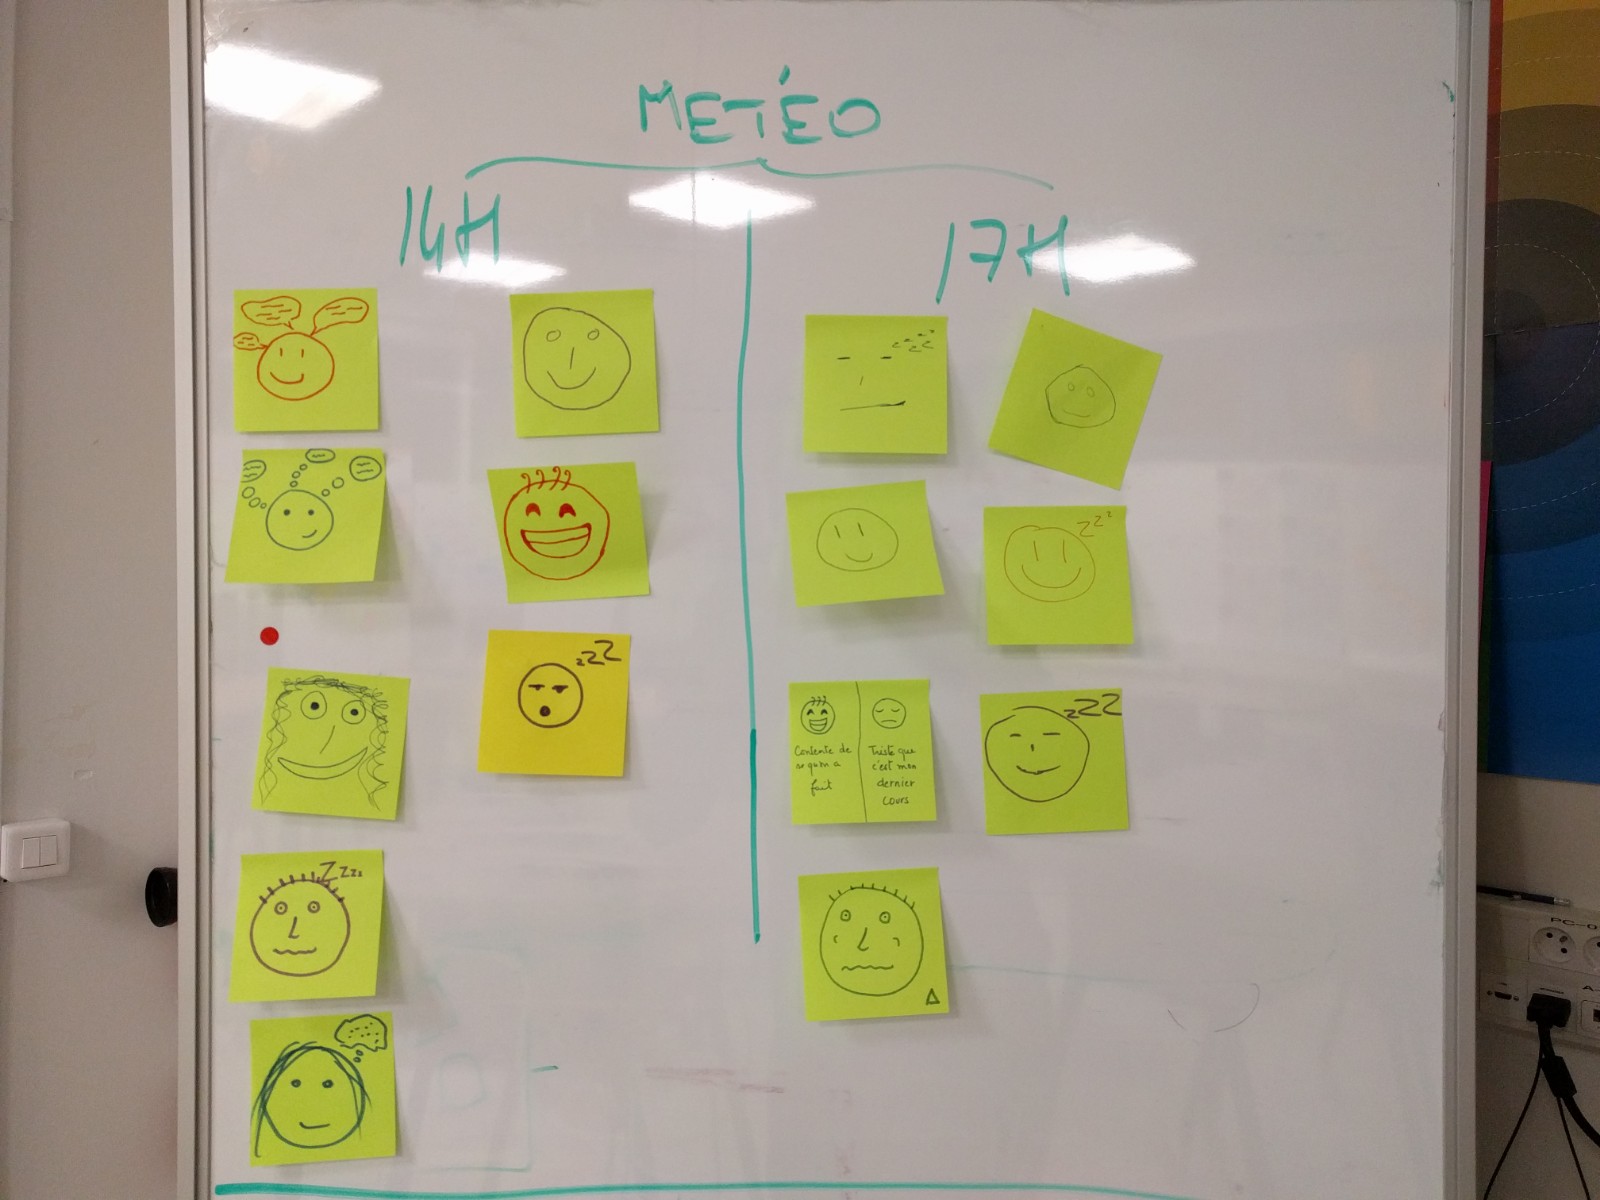 METÉO
14H
17H
zzzz
zzz
zzZ
Zzzz
Contente de
ce qu'on a
fait
Triste que
c'est mon
dernier
cours
zZZ
PC-0